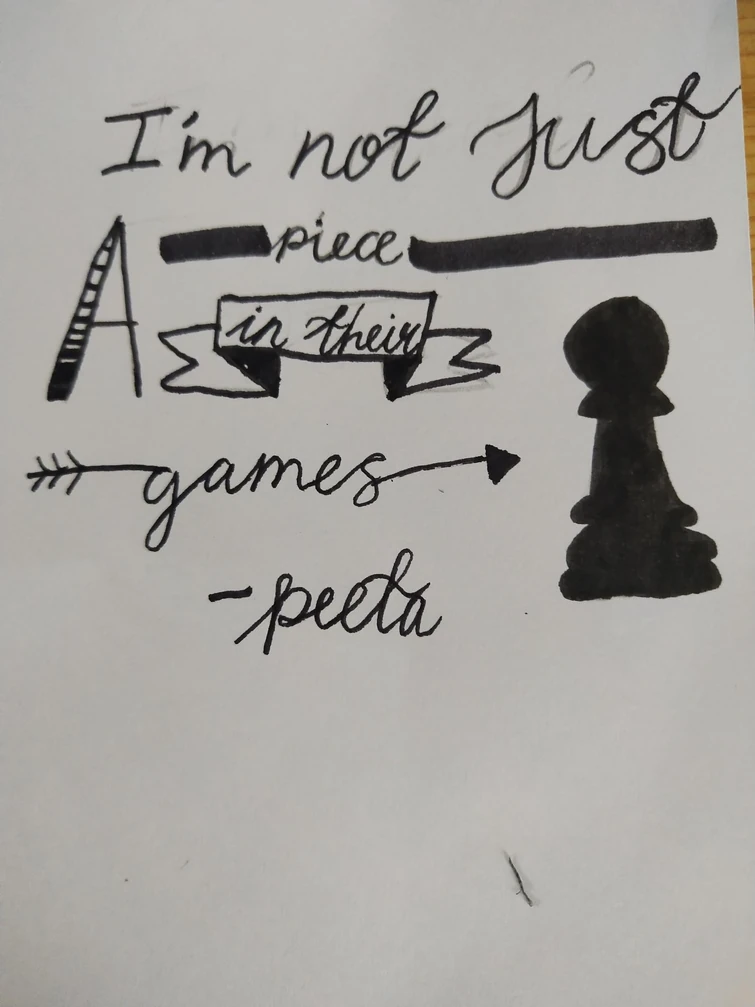 I'm not Just
A piece
in their
games
-peeta